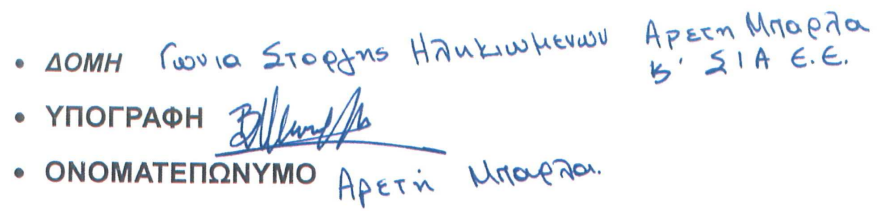 • ΔΟΜΗ Γωνια Στοργης Ηληκιωμενων Αρετη Μπαρλα
κ' ΣΙΑ Ε.Ε.
• ΥΠΟΓΡΑΦΗ
• ΟΝΟΜΑΤΕΠΩΝΥΜΟ Αρετή Μπαρλα.